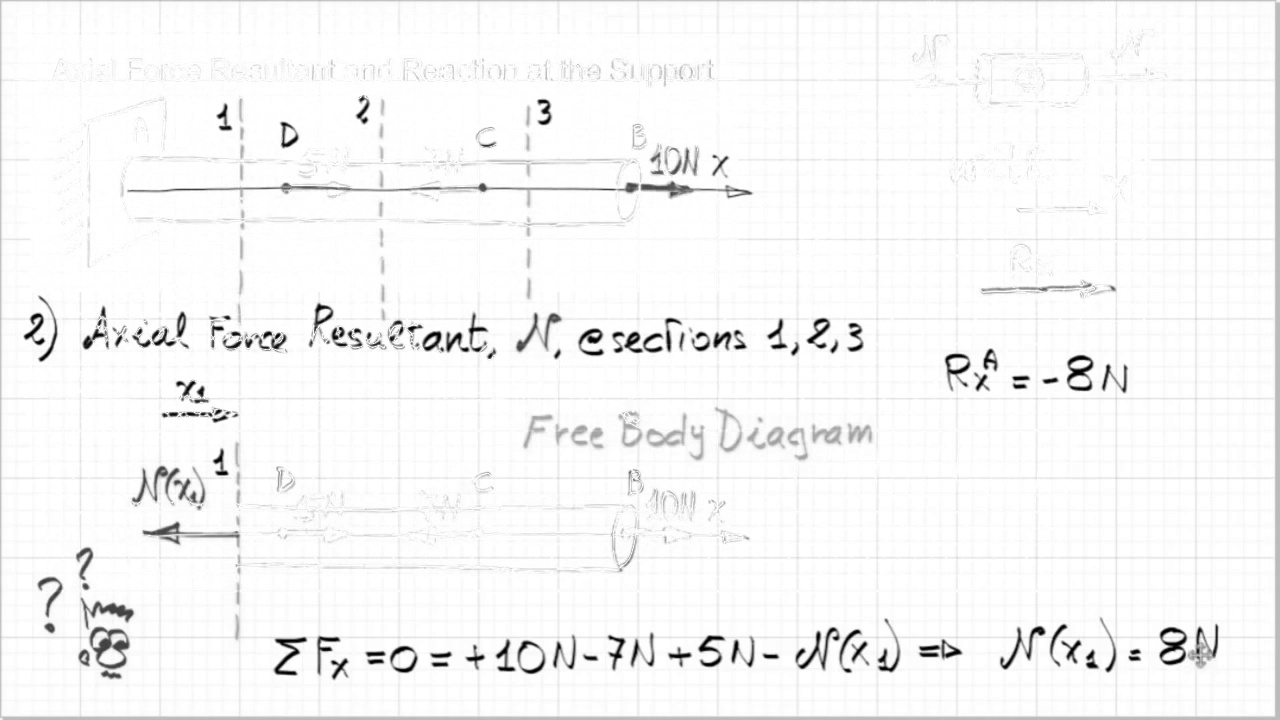 Axial Force Resultant and Reaction at the Support
N N
1 2 3
A D C B
5N 7N 10N x
x
Rx
2) Axial Force Resultant, N, @ sections 1, 2, 3
RxA = -8N
x1
Free Body Diagram
N(x1) 1 D C B
5N 7N 10N x
? ?
ΣFx = 0 = +10N - 7N + 5N - N(x1) => N(x1) = 8N